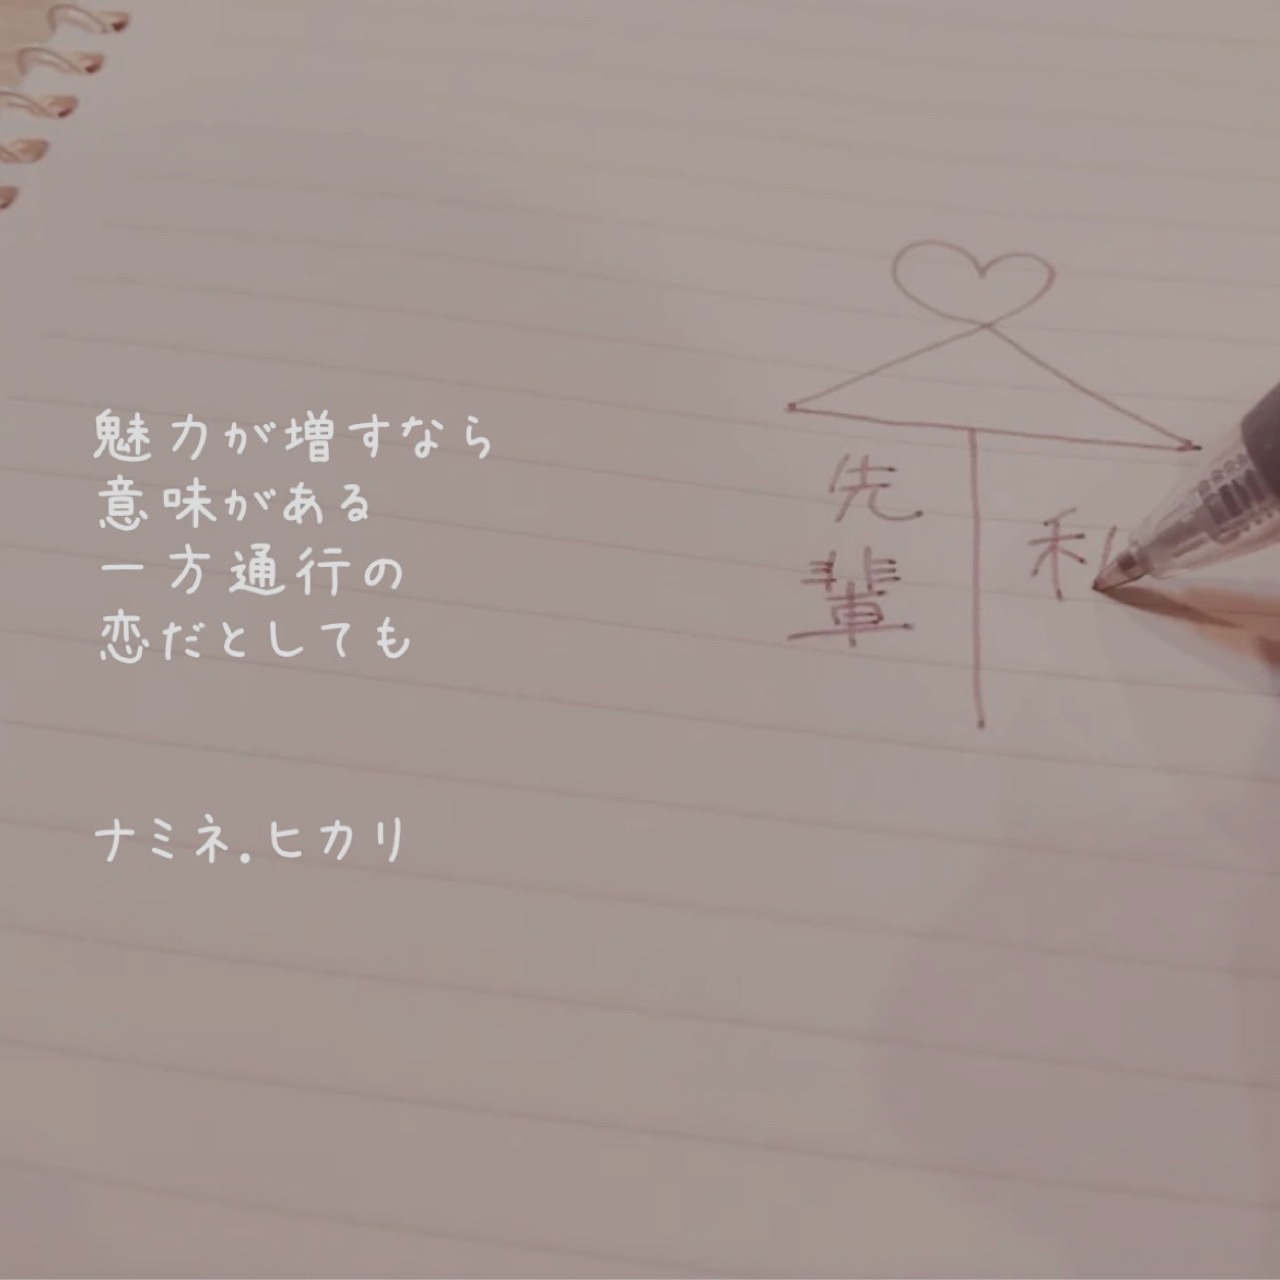 魅力が増すなら
意味がある
一方通行の
恋だとしても
ナミネ.ヒカリ
先輩
私